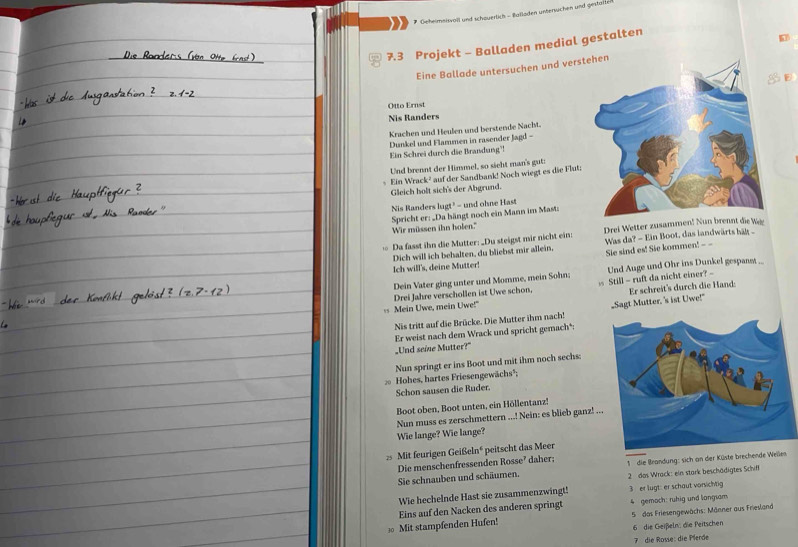 Die Randers (von Otto Ernst)
- Was ist die Ausganstation? Z. 1-2
- Wer ist die Hauptfiegur?
de haupfiegur ist, Nis Rander"
- Wie wird der Konflikt gelöst? (Z. 7-12)
7 Geheimnisvoll und schauerlich – Balladen untersuchen und gestalten
7.3 Projekt – Balladen medial gestalten
Eine Ballade untersuchen und verstehen
Otto Ernst
Nis Randers
Krachen und Heulen und berstende Nacht,
Dunkel und Flammen in rasender Jagd –
Ein Schrei durch die Brandung¹!
Und brennt der Himmel, so sieht man's gut:
5 Ein Wrack² auf der Sandbank! Noch wiegt es die Flut;
Gleich holt sich's der Abgrund.
Nis Randers lugt³ – und ohne Hast
Spricht er: „Da hängt noch ein Mann im Mast;
Wir müssen ihn holen."
10 Da fasst ihn die Mutter: „Du steigst mir nicht ein:
Dich will ich behalten, du bliebst mir allein,
Ich will's, deine Mutter!
Dein Vater ging unter und Momme, mein Sohn;
Drei Jahre verschollen ist Uwe schon,
15 Mein Uwe, mein Uwe!"
Nis tritt auf die Brücke. Die Mutter ihm nach!
Er weist nach dem Wrack und spricht gemach⁴:
„Und seine Mutter?"
Nun springt er ins Boot und mit ihm noch sechs:
20 Hohes, hartes Friesengewächs⁵;
Schon sausen die Ruder.
Boot oben, Boot unten, ein Höllentanz!
Nun muss es zerschmettern ...! Nein: es blieb ganz! ...
Wie lange? Wie lange?
25 Mit feurigen Geißeln⁶ peitscht das Meer
Die menschenfressenden Rosse⁷ daher;
Sie schnauben und schäumen.
Wie hechelnde Hast sie zusammenzwingt!
Eins auf den Nacken des anderen springt
30 Mit stampfenden Hufen!
Drei Wetter zusammen! Nun brennt die Welt!
Was da? – Ein Boot, das landwärts hält –
Sie sind es! Sie kommen! – –
Und Auge und Ohr ins Dunkel gespannt ...
35 Still – ruft da nicht einer? –
Er schreit's durch die Hand:
„Sagt Mutter, 's ist Uwe!"
1 die Brandung: sich an der Küste brechende Wellen
2 das Wrack: ein stark beschädigtes Schiff
3 er lugt: er schaut vorsichtig
4 gemach: ruhig und langsam
5 das Friesengewächs: Männer aus Friesland
6 die Geißeln: die Peitschen
7 die Rosse: die Pferde